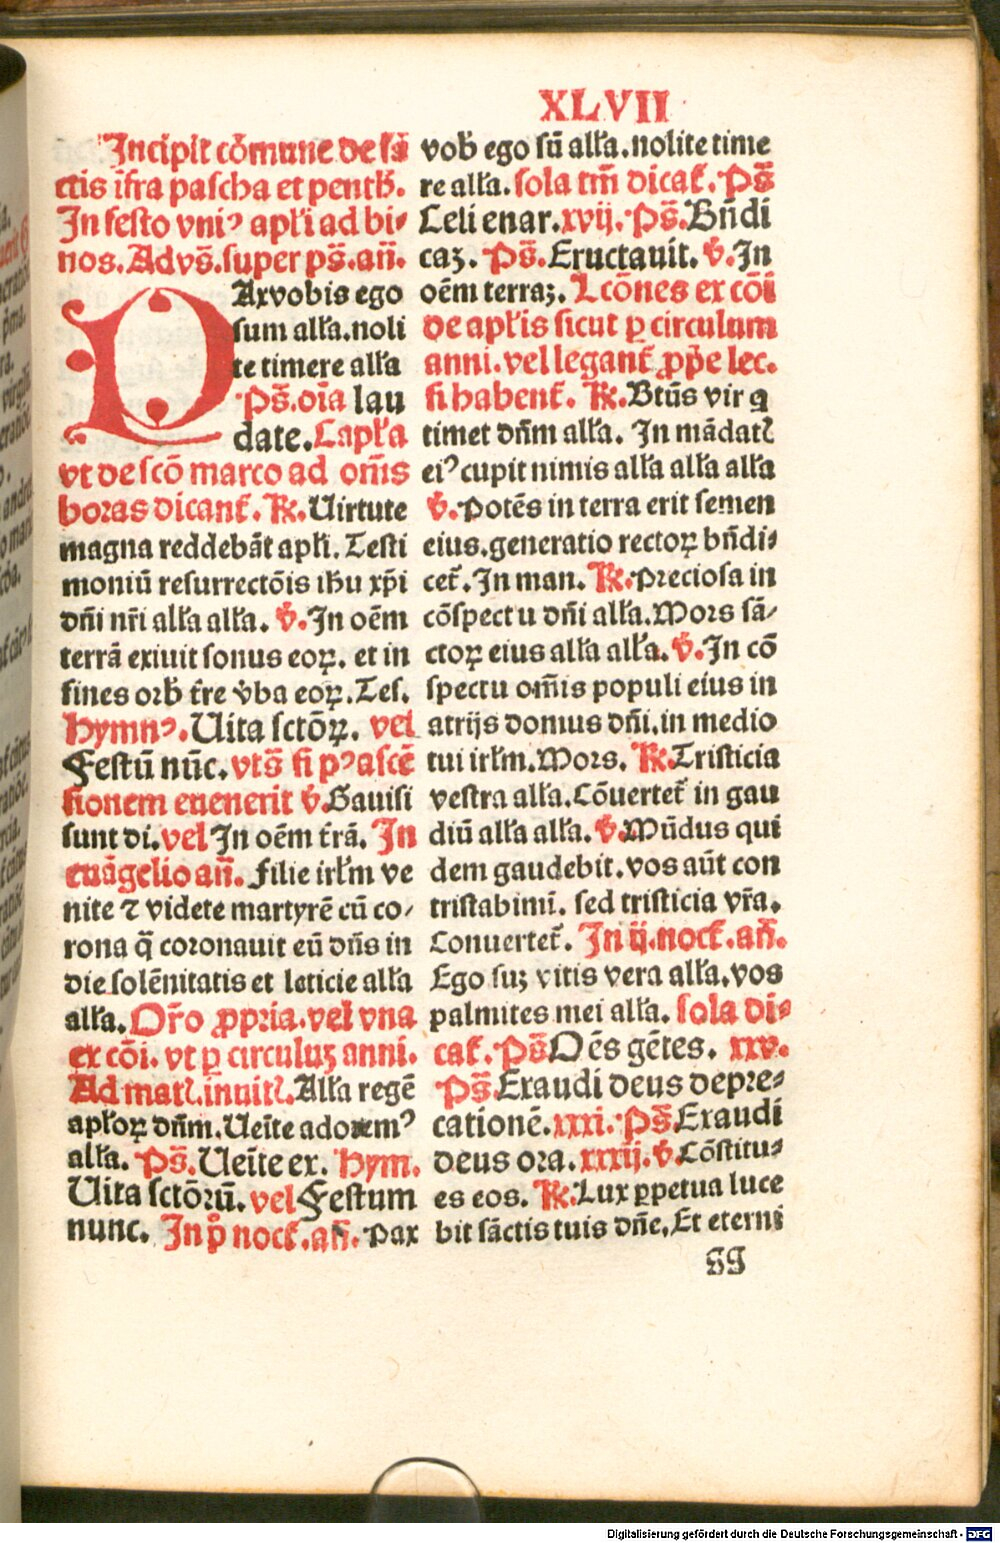 XLVII
Incipit cōmune de sā
ctis īfra pascha et pentħ.
In festo vniꝰ apłi ad bi⸗
nos. Ad vs̄. super ps̄. an̄.
PAx vobis ego
sum alła. noli
te timere alła
Ps̄. oīa lau
date. Capła
vt de scō marco ad om̄s
horas dicant̄. R̄. Uirtute
magna reddebāt apłi. Testi
moniū resurrectōis ihu xp̄i
dn̄i nr̄i alła alła. v̄. In oēm
terrā exiuit sonus eoꝝ. et in
fines orb t̄re v̄ba eoꝝ. Tes.
Hymnꝰ. Uita sctōꝝ. vel
Festū nūc. vts̄ si pꝰ ascē
sionem euenerit v̄. Gauisi
sunt di. vel In oēm t̄rā. In
euāgelio an̄. Filie irłm ve
nite ⁊ videte martyrē cū co⸗
rona q̄ coronauit eū dn̄s in
die solēnitatis et leticie alła
alła. Or̄o ꝓpria. vel vna
ex cōi. vt ꝑ circuluꝫ anni.
Ad matł. inuitł. Alła regē
apłoꝝ dn̄m. Ueīte adoremꝰ
alła. Ps̄. Ueīte ex. Hym.
Uita sctōrū. vel Festum
nunc. In p̊ noct̄. an̄. Pax
vob ego sū alła. nolite time
re alła. sola tm̄ dicat̄. Ps̄
Celi enar. xvij. Ps̄. Bn̄di
caꝫ. Ps̄. Eructauit. v̄. In
oēm terraꝫ. Lcōnes ex cōi
de apłis sicut ꝑ circulum
anni. vel legant̄ ꝓpͤe lec.
si habent̄. R̄. Btūs vir q
timet dn̄m alła. In mādatꝭ
eiꝰ cupit nimis alła alła alła
v̄. Potēs in terra erit semen
eius. generatio rectoꝝ bn̄di⸗
cet̄. In man. R̄. Preciosa in
cōspectu dn̄i alła. Mors sā⸗
ctoꝝ eius alła alła. v̄. In cō
spectu om̄is populi eius in
atrijs domus dn̄i. in medio
tui irłm. Mors. R̄. Tristicia
vestra alła. Cōuertet̄ in gau
diū alła alła. v̄. Mūdus qui
dem gaudebit. vos aūt con
tristabimī. sed tristicia vr̄a.
Conuertet̄. In ij. noct̄. an̄.
Ego suꝫ vitis vera alła. vos
palmites mei alła. sola di⸗
cat̄. Ps̄ Oēs gētes. xxv.
Ps̄. Exaudi deus depre⸗
cationē. xxxi. Ps̄. Exaudi
deus ora. xxxij. v̄. Cōstitu⸗
es eos. R̄. Lux ꝑpetua luce
bit sāctis tuis dn̄e. Et eterni
gg
Digitalisierung gefördert durch die Deutsche Forschungsgemeinschaft - DFG